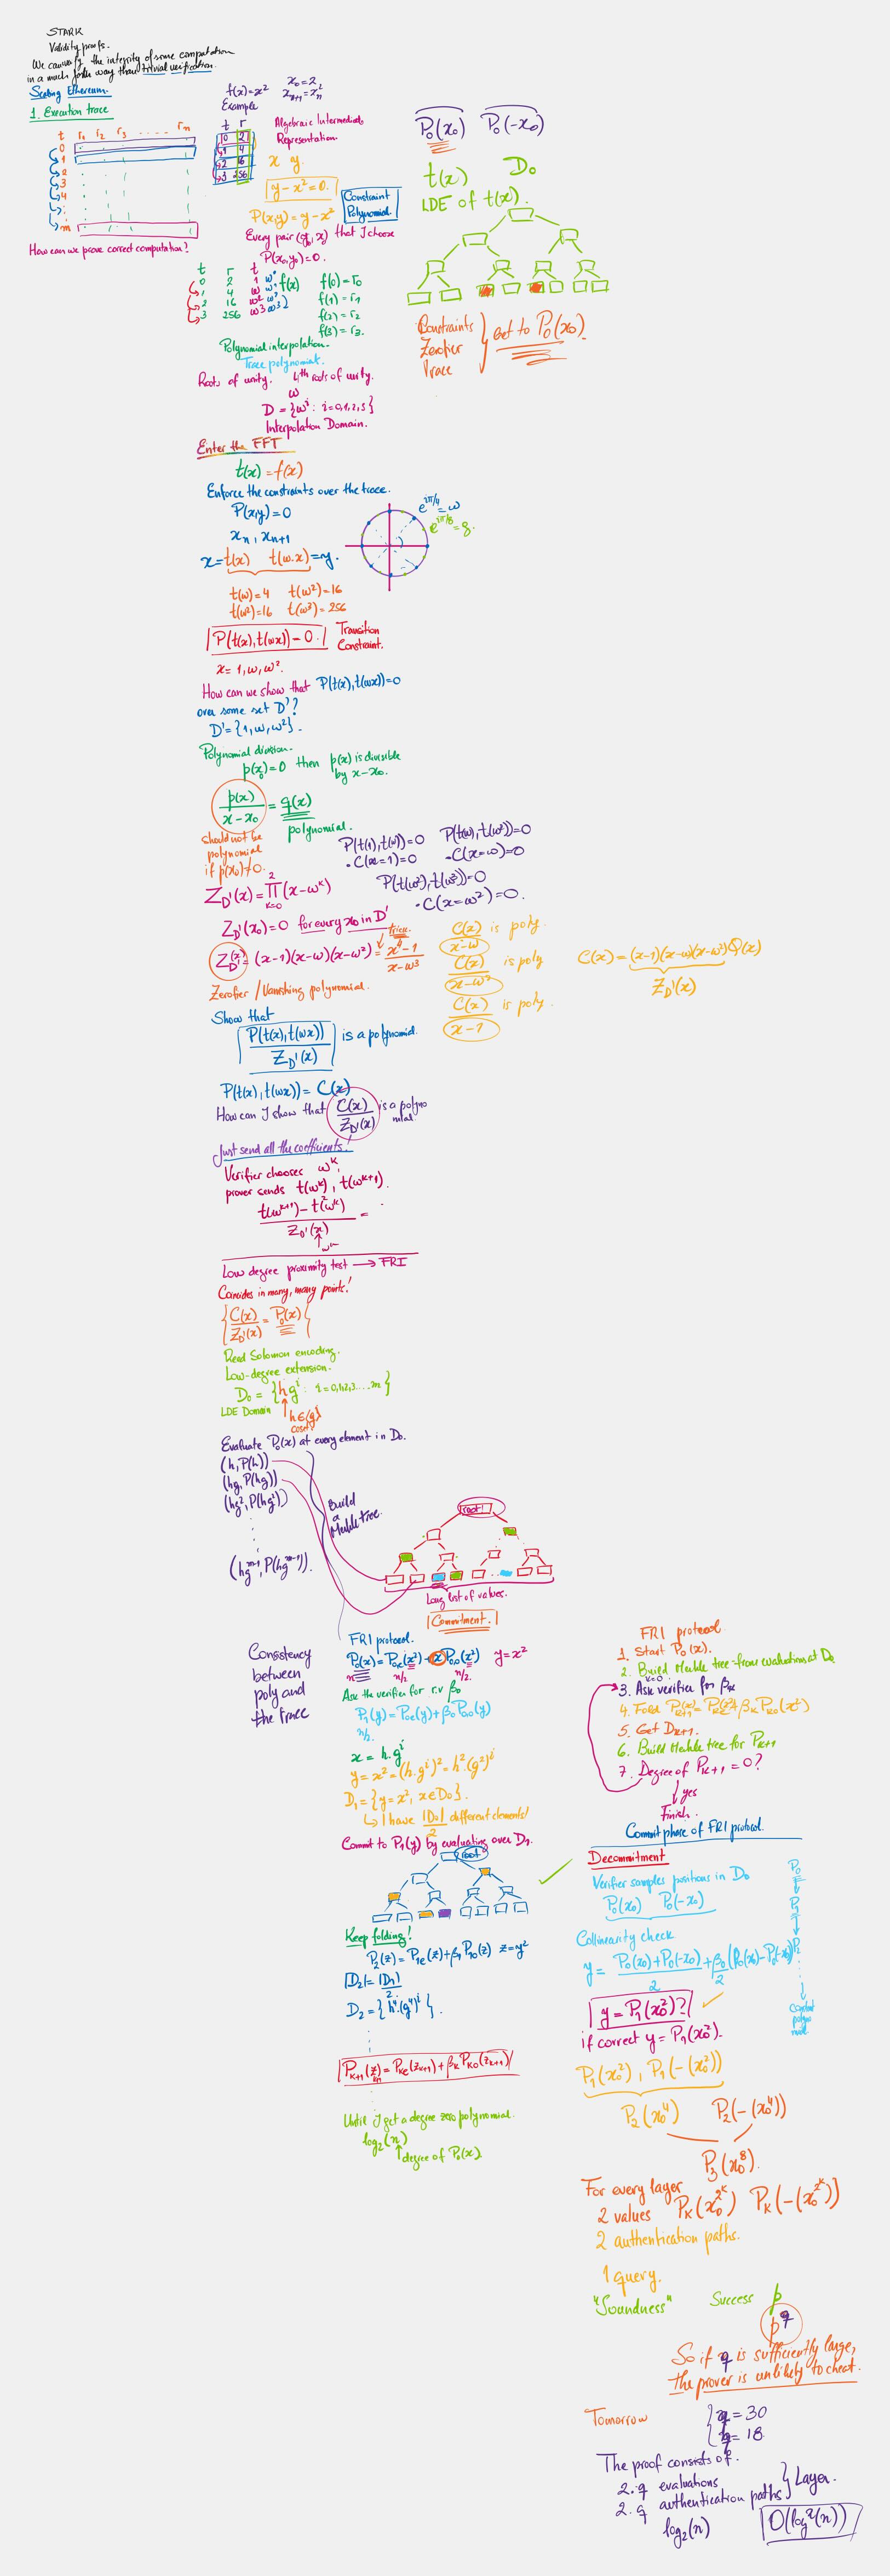 STARK
Validity proofs.
We can verify the integrity of some computation
in a much faster way than trivial verification.
Scaling Ethereum.
1. Execution trace
t r₁ r₂ r₃ ..... rₙ
0
1
2
3
4
:
m
How can we prove correct computation?
f(x)=x² x₀=2
xₙ₊₁=xₙ²
Example
t r
0 2
1 4
2 16
3 256
Algebraic Intermediate
Representation.
x y
y-x²=0.
Constraint
Polynomial.
P(x,y)=y-x²
Every pair that I choose
P(x₀,y₀)=0.
t r t
0 2 1 ω⁰ f(x) f(0)=r₀
1 4 ω ω¹ f(1)=r₁
2 16 ω² ω² f(2)=r₂
3 256 ω³ ω³ f(3)=r₃.
Polynomial interpolation.
Trace polynomial.
Roots of unity. 4th roots of unity.
ω
D={ωⁱ: i=0,1,2,3}
Interpolation Domain.
Enter the FFT
t(x)=f(x)
Enforce the constraints over the trace.
P(x,y)=0
xₙ, xₙ₊₁
x=t(x) t(ω.x)=y.
e^{iπ/4}=ω
e^{iπ/8}=g.
t(ω)=4 t(ω²)=16
t(ω²)=16 t(ω³)=256
P(t(x),t(ωx))=0. Transition
Constraint.
x=1,ω,ω².
How can we show that P(t(x),t(ωx))=0
over some set D'?
D'={1,ω,ω²}.
Polynomial division.
p(x₀)=0 then p(x) is divisible
by x-x₀.
p(x)/(x-x₀) = q(x)
polynomial.
should not be
polynomial
if p(x₀)≠0.
P(t(1),t(ω))=0 P(t(ω),t(ω²))=0
-C(x=1)=0 -C(x=ω)=0
P(t(ω²),t(ω³))=0
-C(x=ω²)=0.
Z_D'(x)=∏_{k=0}^{2}(x-ωᵏ)
Z_D'(x₀)=0 for every x₀ in D'
Z_D'(x)=(x-1)(x-ω)(x-ω²)=(x⁴-1)/(x-ω³)
Zerofier / Vanishing polynomial.
C(x)/(x-ω) is poly.
C(x)/(x-ω²) is poly
C(x)/(x-1) is poly.
C(x)=(x-1)(x-ω)(x-ω²)Q(x)
Z_D'(x)
Show that
P(t(x),t(ωx))/Z_D'(x) is a polynomial.
P(t(x),t(ωx))=C(x)
How can I show that C(x)/Z_D'(x) is a polynomial?
Just send all the coefficients!
Verifier chooses ωᵏ,
prover sends t(ωᵏ), t(ωᵏ⁺¹).
(t(ωᵏ⁺¹)-t²(ωᵏ))/Z_D'(x) =
ωᵏ
Low degree proximity test → FRI
Coincides in many, many points!
{C(x)/Z_D'(x)=P₀(x)}
Reed Solomon encoding.
Low-degree extension.
D₀={h gⁱ: i=0,1,2,3....m}
LDE Domain h∉{g}
coset
Evaluate P₀(x) at every element in D₀.
(h,P(h))
(hg,P(hg))
(hg²,P(hg²))
(hg^{m-1},P(hg^{m-1})).
Build
a
Merkle tree.
root!
Long list of values.
Commitment.
Consistency
between
poly and
the trace
FRI protocol.
P₀(x)=P₀ₑ(x²)+xP₀₀(x²) y=x²
n n/2 n/2.
Ask the verifier for r.v β₀
P₁(y)=P₀ₑ(y)+β₀P₀₀(y)
n/2.
x=h.gⁱ
y=x²=(h.gⁱ)²=h².(g²)ⁱ
D₁={y=x², x∈D₀}.
↳ I have |D₀|/2 different elements!
Commit to P₁(y) by evaluating over D₁.
root
Keep folding!
P₂(z)=P₁ₑ(z)+β₁P₁₀(z) z=y²
|D₂|=|D₁|/2
D₂={h⁴.(g⁴)ⁱ}.
Pₖ₊₁(z)=Pₖₑ(zₖ₊₁)+βₖPₖ₀(zₖ₊₁)
Until I get a degree zero polynomial.
log₂(n)
degree of P₀(x)
P₀(x₀) P₀(-x₀)
t(x) D₀
LDE of t(x).
Constraints
Zerofier
Trace
Get to P₀(x₀).
FRI protocol.
1. Start P₀(x).
2. Build Merkle tree from evaluation at D₀
k=0
3. Ask verifier for βₖ
4. Fold Pₖ₊₁(x²)=Pₖₑ(x²)+βₖPₖ₀(x²)
5. Get Dₖ₊₁.
6. Build Merkle tree for Pₖ₊₁
7. Degree of Pₖ₊₁=0?
yes
Finish.
Commit phase of FRI protocol.
Decommitment
Verifier samples positions in D₀
P₀(x₀) P₀(-x₀)
Collinearity check
y=(P₀(x₀)+P₀(-x₀))/2+β₀/2(P₀(x₀)-P₀(-x₀))
P₀
P₁
P₂
Constant
polyno
mial.
y=P₁(x₀²)?
if correct y=P₁(x₀²).
P₁(x₀²), P₁(-(x₀²))
P₂(x₀⁴) P₂(-(x₀⁴))
P₃(x₀⁸).
For every layer
2 values Pₖ(x₀^{2ᵏ}) Pₖ(-(x₀^{2ᵏ}))
2 authentication paths.
1 query.
"Soundness" Success p
p^q
So if q is sufficiently large,
the prover is unlikely to cheat.
Tomorrow q=30
q=18
The proof consists of.
2.q evaluations
2.q authentication paths } Layer.
log₂(n) O(log²(n))